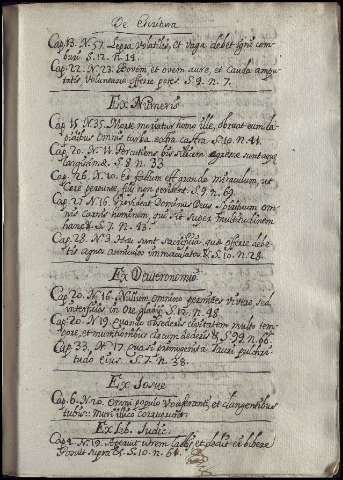 De Scriptura
Cap. 13. N. 57. Lepra volatilis, et vaga debet igni com-
buri S. 12. n. 14.
Cap. 22. N. 23. Bovem, et ovem aure, et cauda ampu
tatis voluntarie offerre potes. S. 9. n. 7.
Ex Numeris
Cap. 15. N. 35. Morte moriatur homo iste, obruat eum la-
pidibus omnis turba extra castra. S. 10. n. 41.
Cap. 20. N. 11. Percutiens bis silicem egressae sunt aquae
largissimae. S. 8. n. 33
Cap. 26. N. 10. et factum est grande miraculum, ut
Core pereunte, filii non perirent. S. 9. n. 69.
Cap. 27 N. 16. Provideat Dominus Deus Spirituum om-
nis carnis hominem, qui sit super multitudinem
hanc. S. 7. n. 43.
Cap. 28. N. 3. Haec sunt sacrificia quae offerre debe-
tis agnos anniculos immaculatos &. S. 10. n. 28.
Ex Deuteronomio
Cap. 20. N. 16. Nullum omnino permittes vivere sed
interficies in ore gladii. S. 12. n. 48.
Cap. 20. N. 19. Quando obsederis civitatem multo tem-
pore, et munitionibus circumdederis &. S. 9. n. 66.
Cap. 33. N. 17 quasi primogeniti Tauri pulchri-
tudo eius. S. 7. n. 38.
Ex Josue
Cap. 6. N. 20. omni populo vociferante, et clangentibus
tubis: muri illico corruerunt.
Ex Lib. Judic.
Cap. 4. N. 19. Aperuit utrem lactis et dedit ei bibere
S. 10. n. 64.